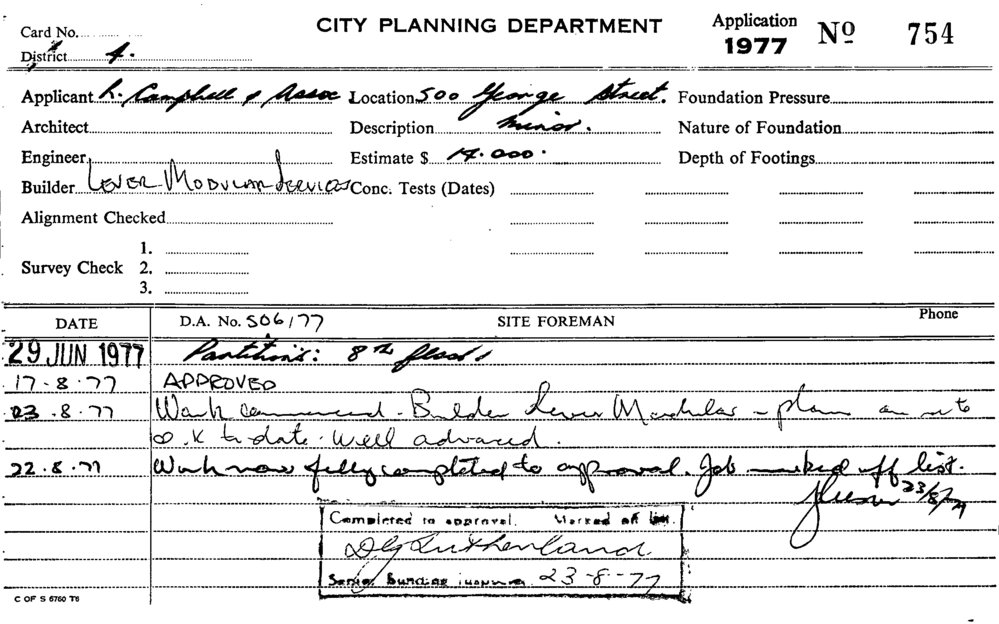 CITY PLANNING DEPARTMENT
Application
1977 Nº 754
Card No.
District 4.
Applicant R. Campbell & Assoc Location 500 George Street. Foundation Pressure
Architect Description minor. Nature of Foundation
Engineer Estimate $ 14.000. Depth of Footings
Builder Lever Modular Services Conc. Tests (Dates)
Alignment Checked
1.
Survey Check 2.
3.
DATE D.A. No. 506/77 SITE FOREMAN Phone
29 JUN 1977 Partitions: 8th floor
17-8-77 APPROVED
23.8.77 Work commenced - Builder Lever Modular - plans on site
O.K to date. Well advanced.
22.8.77 Work now fully completed to approval. Job marked off list.
23/8/77
Completed to approval. Marked off list
D G Sutherland
Senior Building 23-8-77
C OF S 6760 T6